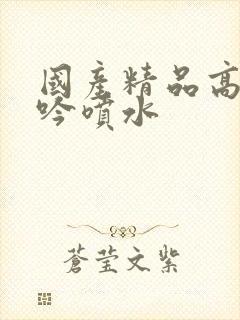 國產精品高
吟噴水
蒼莹文紫